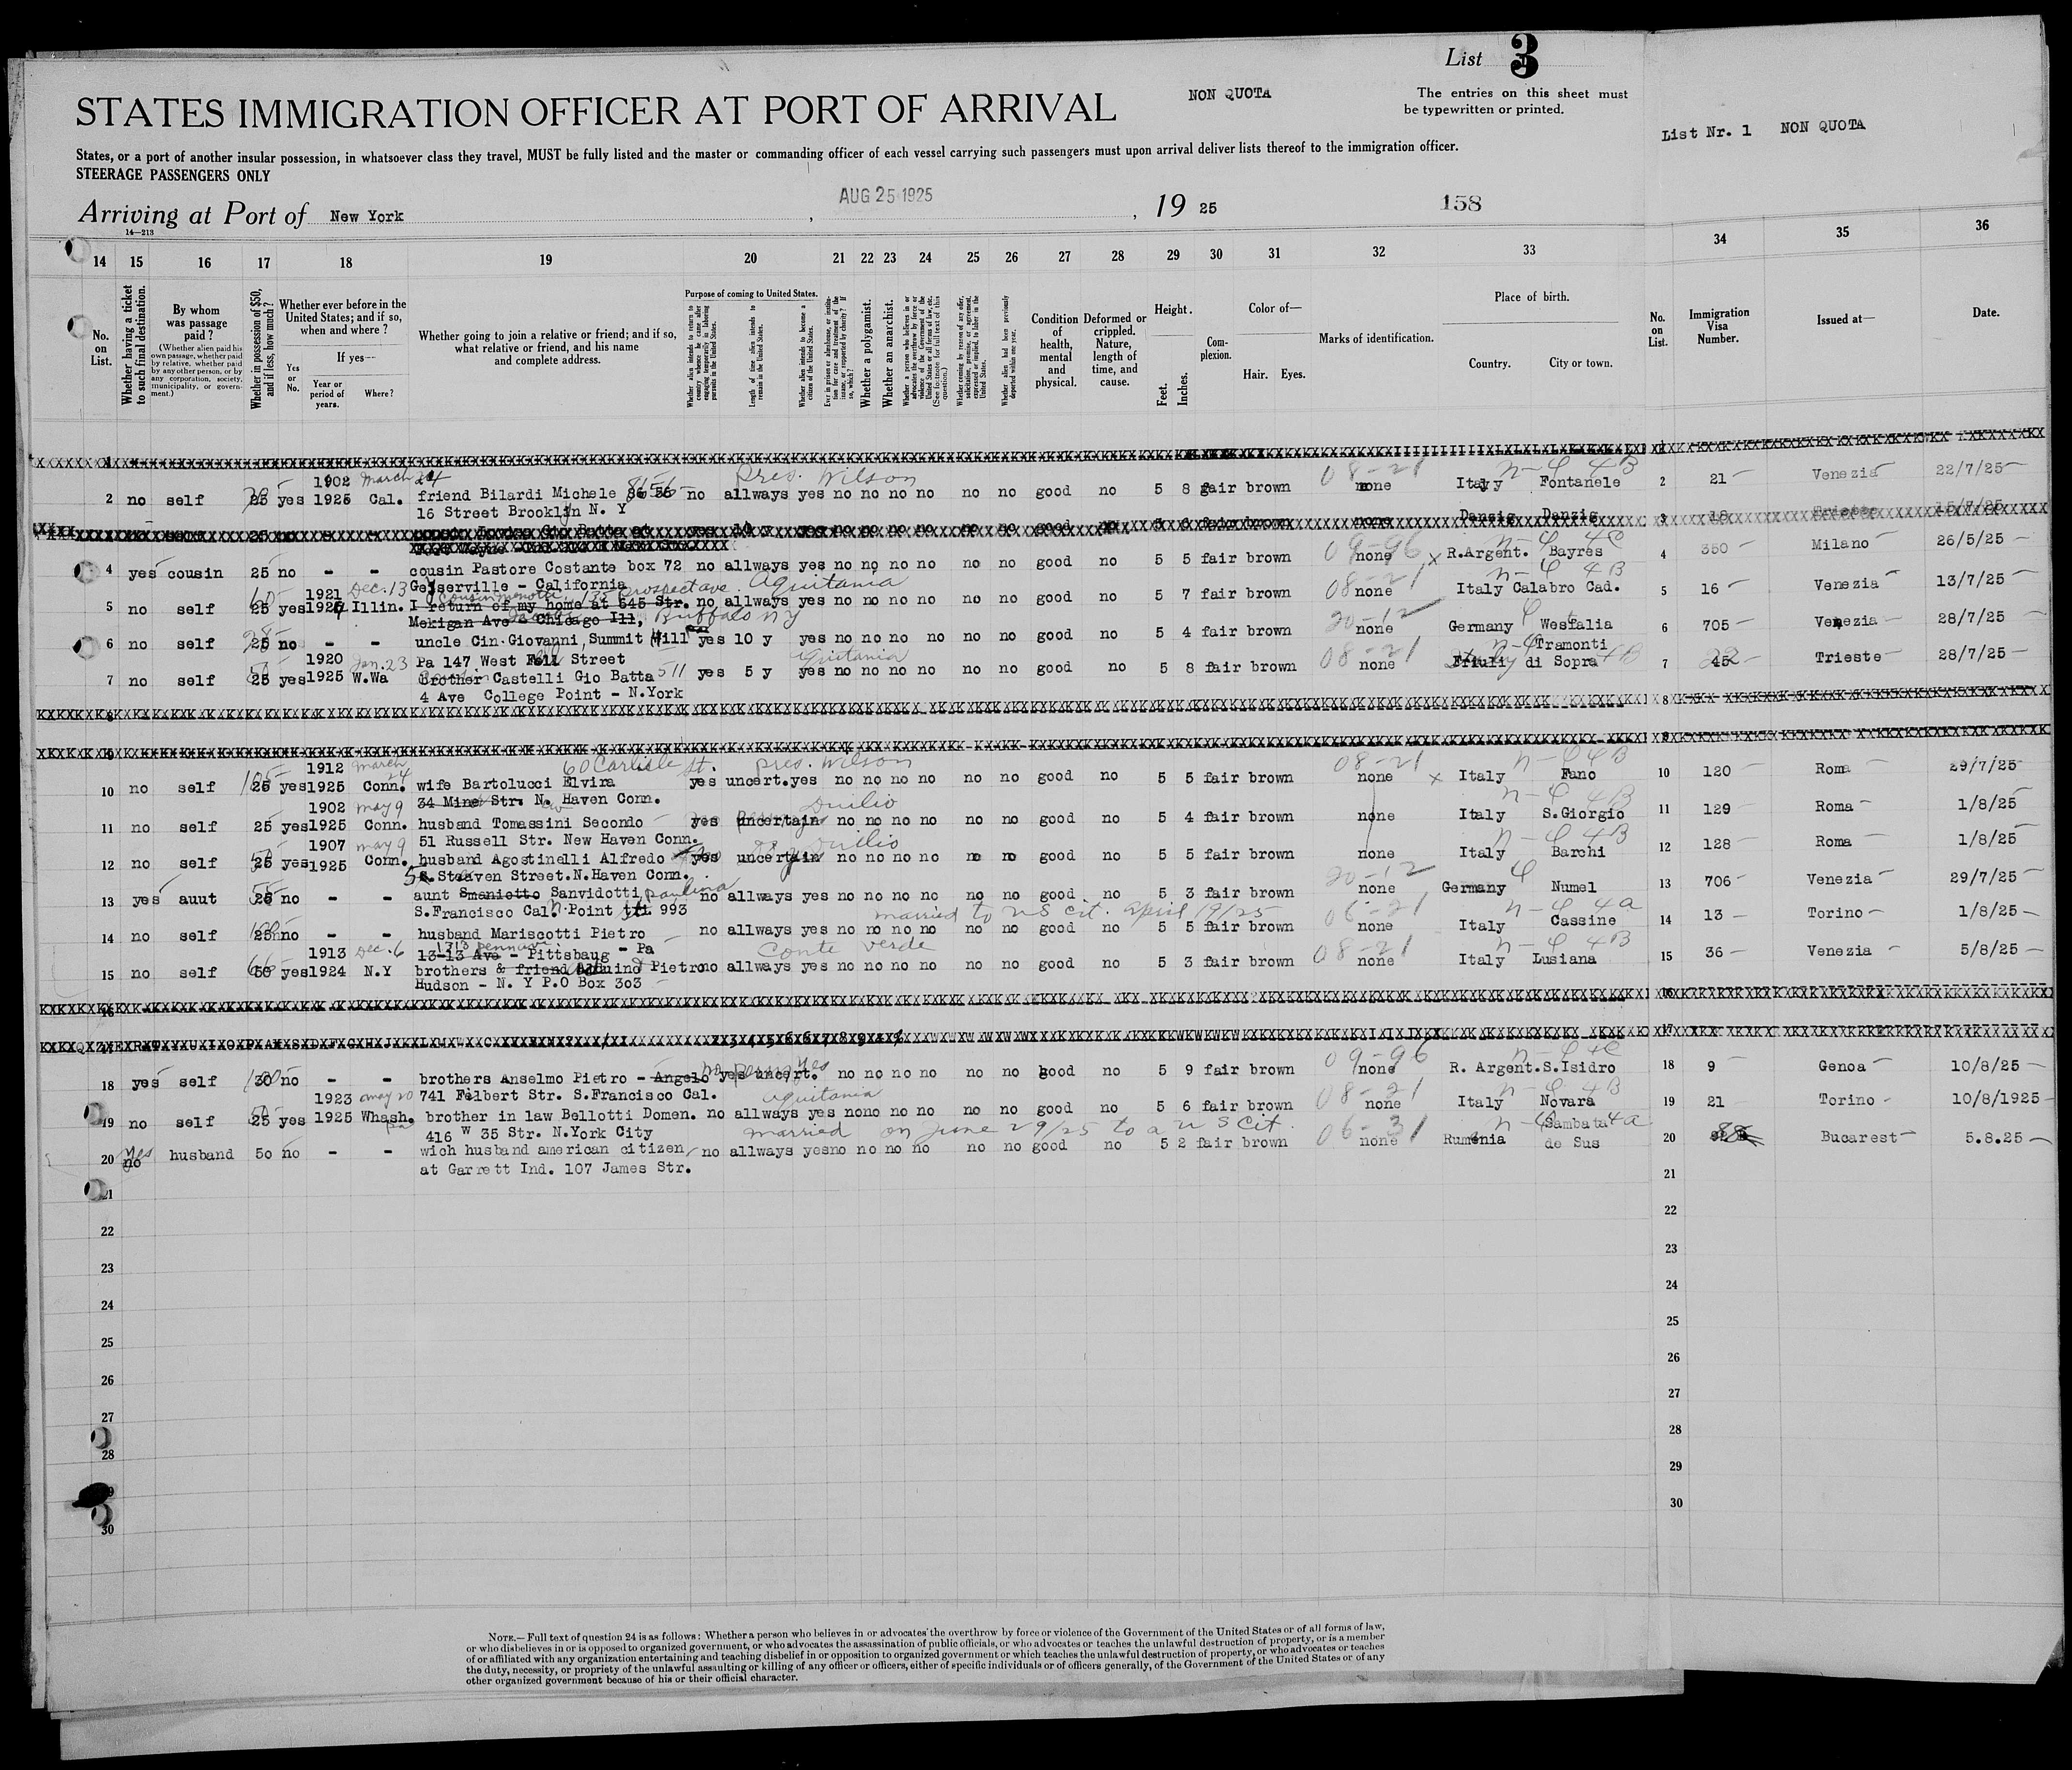 List 3
STATES IMMIGRATION OFFICER AT PORT OF ARRIVAL
NON QUOTA
The entries on this sheet must
be typewritten or printed.
List Nr. 1 NON QUOTA
States, or a port of another insular possession, in whatsoever class they travel, MUST be fully listed and the master or commanding officer of each vessel carrying such passengers must upon arrival deliver lists thereof to the immigration officer.
STEERAGE PASSENGERS ONLY
Arriving at Port of New York , AUG 25 1925 , 19 25 158
14—213
14 15 16 17 18 19 20 21 22 23 24 25 26 27 28 29 30 31 32 33 34 35 36
No. on List.
Whether having a ticket to such final destination.
By whom was passage paid?
(Whether alien paid his own passage, whether paid by relative, whether paid by any other person, or by any corporation, society, municipality, or government.)
Whether in possession of $50, and if less, how much?
Whether ever before in the United States; and if so, when and where?
Yes or No.
If yes—
Year or period of years.
Where?
Whether going to join a relative or friend; and if so, what relative or friend, and his name and complete address.
Purpose of coming to United States.
Whether alien intends to return to country whence he came after engaging temporarily in laboring pursuits in the United States.
Length of time alien intends to remain in the United States.
Whether alien intends to become a citizen of the United States.
Ever in prison or almshouse, or institution for care and treatment of the insane, or supported by charity? If so, which?
Whether a polygamist.
Whether an anarchist.
Whether a person who believes in or advocates the overthrow by force or violence of the Government of the United States or all forms of law, etc. (See footnote for full text of this question.)
Whether coming by reason of any offer, solicitation, promise, or agreement, expressed or implied, to labor in the United States.
Whether alien had been previously deported within one year.
Condition of health, mental and physical.
Deformed or crippled. Nature, length of time, and cause.
Height.
Feet. Inches.
Complexion.
Color of—
Hair. Eyes.
Marks of identification.
Place of birth.
Country. City or town.
No. on List.
Immigration Visa Number.
Issued at—
Date.
1902 March 24 Pres. Wilson 08-21 n-4 4B
2 no self 25 yes 1925 Cal. friend Bilardi Michele 86 56 no allways yes no no no no no no good no 5 8 fair brown none Italy Fontanele 2 21 Venezia 22/7/25
16 Street Brooklyn N. Y
3 Danzig Danzig 3 18 15/7/25
09-96 n-4 4C
4 yes cousin 25 no - - cousin Pastore Costante box 72 no allways yes no no no no no no good no 5 5 fair brown none R.Argent. Bayres 4 350 Milano 26/5/25
Geyserville - California
1921 Dec. 13 135 Prospect ave. Aquitania 08-21 n-4 4B
5 no self 25 yes 1924 Illin. I return of my home at 645 Str. no allways yes no no no no no no good no 5 7 fair brown none Italy Calabro Cad. 5 16 Venezia 13/7/25
Mekigan Ave - Chicago Ill, Buffalo NY
20-12 4
6 no self 25 no - - uncle Cin Giovanni, Summit Hill yes 10 y yes no no no no no no good no 5 4 fair brown none Germany Wesfalia 6 705 Venezia 28/7/25
1920 Jan. 23 Pa 147 West Street Aquitania 08-21 n-4 Tramonti
7 no self 25 yes 1925 W.Wa brother Castelli Gio Batta 511 yes 5 y yes no no no no no no good no 5 8 fair brown none Friuli di Sopra 4B 7 45 22 Trieste 28/7/25
4 Ave College Point - N.York
8 8
9 9
1912 March 24 60 Carlisle St. Pres. Wilson 08-21 n-4 4B
10 no self 25 yes 1925 Conn. wife Bartolucci Elvira yes uncert. yes no no no no no no good no 5 5 fair brown none Italy Fano 10 120 Roma 29/7/25
34 Mine Str. N. Haven Conn.
1902 May 9 Duilio n-4 4B
11 no self 25 yes 1925 Conn. husband Tomassini Secondo yes uncertain no no no no no no good no 5 4 fair brown none Italy S.Giorgio 11 129 Roma 1/8/25
51 Russell Str. New Haven Conn.
1907 May 9 Duilio n-4 4B
12 no self 25 yes 1925 Conn. husband Agostinelli Alfredo yes uncertain no no no no no no good no 5 5 fair brown none Italy Barchi 12 128 Roma 1/8/25
Steaven Street.N.Haven Conn.
20-12 4
13 yes auut 25 no - - aunt Smanietto Sanvidotti Paulina no allways yes no no no no no no good no 5 3 fair brown none Germany Numel 13 706 Venezia 29/7/25
S.Francisco Cal. Point 993
married to US cit. April 19/25 06-21 n-4 4A
14 no self 25 no - - husband Mariscotti Pietro no allways yes no no no no no no good no 5 5 fair brown none Italy Cassine 14 13 Torino 1/8/25
13-13 Ave - Pittsbaug - Pa
1913 Dec. 6 Conte Verde 08-21 n-4 4B
15 no self 50 yes 1924 N.Y brothers & friend Pietro no allways yes no no no no no no good no 5 3 fair brown none Italy Lusiana 15 36 Venezia 5/8/25
Hudson - N. Y P.O Box 3o3
16 16
17 17
09-96 n-4 4C
18 yes self 30 no - - brothers Anselmo Pietro - Angelo yes uncert. yes no no no no no no good no 5 9 fair brown none R. Argent. S.Isidro 18 9 Genoa 10/8/25
741 Filbert Str. S.Francisco Cal.
1923 May 20 Aquitania 08-21 n-4 4B
19 no self 25 yes 1925 Whash. brother in law Bellotti Domen. no allways yes no no no no no no good no 5 6 fair brown none Italy Novara 19 21 Torino 10/8/1925
416 W 35 Str. N.York City
married on June 29/25 to a U S cit. 06-31 n-4 Sambata 4A
20 yes no husband 5o no - - wich husband american citizen no allways yes no no no no no no good no 5 2 fair brown none Rumenia de Sus 20 Bucarest 5.8.25
at Garrett Ind. 107 James Str.
21 21
22 22
23 23
24 24
25 25
26 26
27 27
28 28
29 29
30 30
NOTE.—Full text of question 24 is as follows: Whether a person who believes in or advocates the overthrow by force or violence of the Government of the United States or of all forms of law,
or who disbelieves in or is opposed to organized government, or who advocates the assassination of public officials, or who advocates or teaches the unlawful destruction of property, or is a member
of or affiliated with any organization entertaining and teaching disbelief in or opposition to organized government or which teaches the unlawful destruction of property, or who advocates or teaches
the duty, necessity, or propriety of the unlawful assaulting or killing of any officer or officers, either of specific individuals or of officers generally, of the Government of the United States or of any
other organized government because of his or their official character.